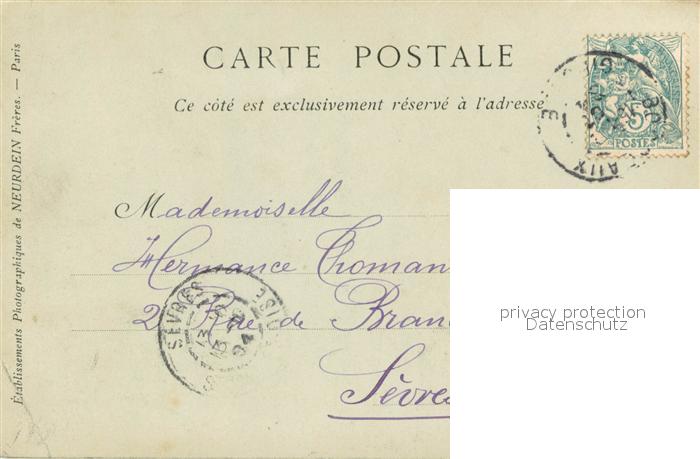 CARTE POSTALE
Ce côté est exclusivement réservé à l'adresse
5
POSTES
Mademoiselle
Hermance Thoman
2 Rue de Bran
Sèvre
SÈVRES
04
privacy protection
Datenschutz
Établissements Photographiques de NEURDEIN Frères. — Paris